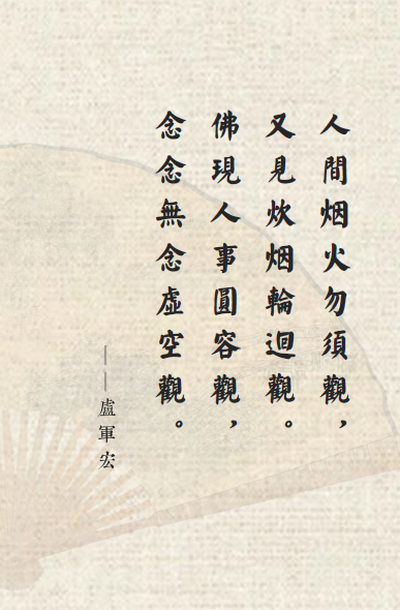 人間烟火勿須觀，
又見炊烟輪迴觀。
佛現人事圓容觀，
念念無念虛空觀。
——盧軍宏